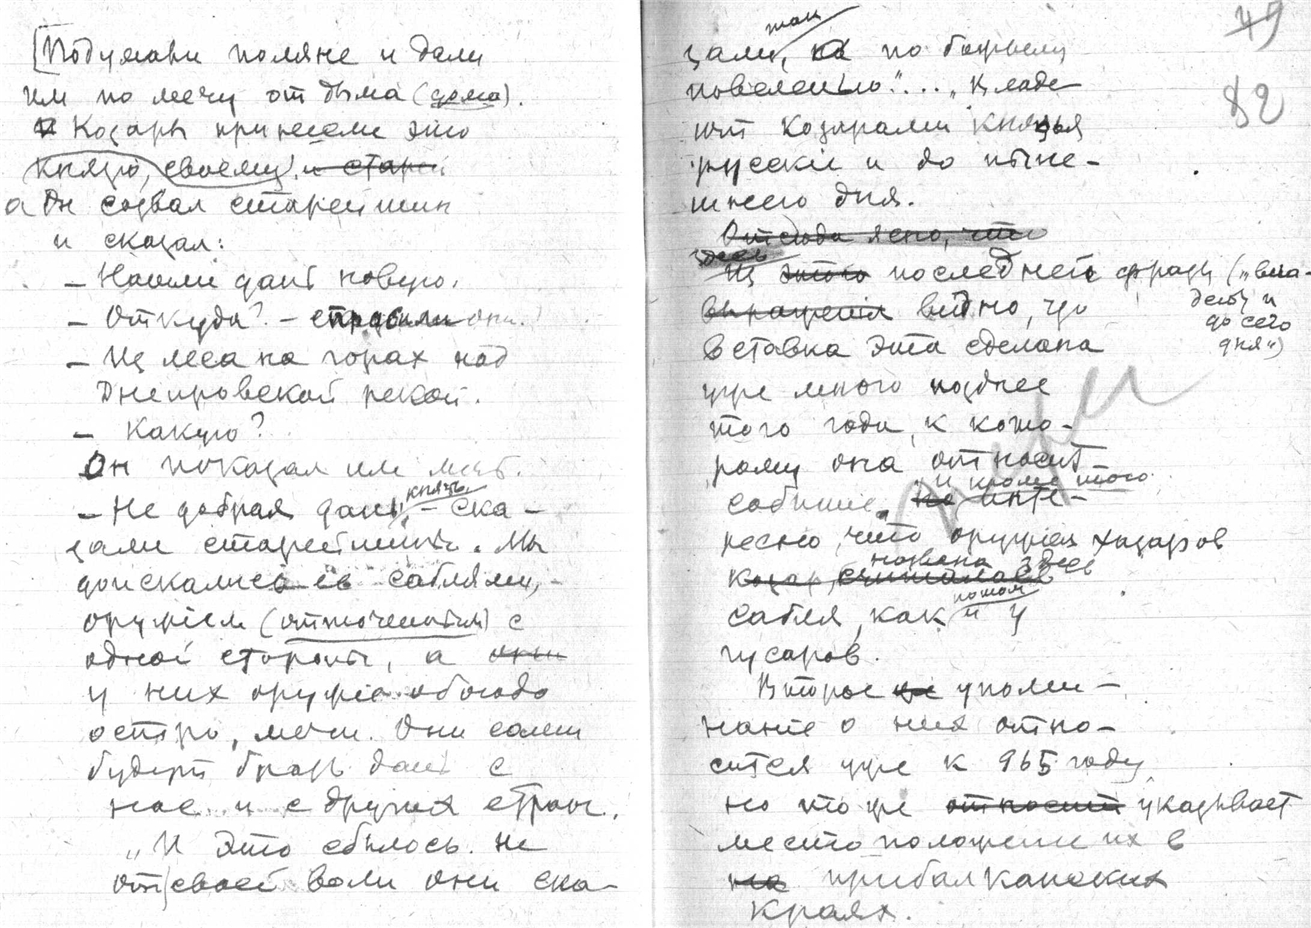 [Подумавши поляне и дали
им по мечу от дыма (дома).
Козары принесли это
князю, своему и стар
а Он созвал старейшин
и сказал:
— Нашли дань новую.
— Откуда? — спросили они.
— Из леса на горах над
Днепровской рекой.
— Какую?
Он показал им меч.
— Не добрая дань, князь — ска-
зали старейшины. Мы
доискались ея саблями,
оружием (отточенным) с
одной стороны, а они
у них оружие обоюдо
остро, мечи. Они сами
будут брать дань с
нас и с других стран.
„И это сбылось. Не
от своей воли они ска-
49
82
зали, так по божьему
повелению“... „Владе
ют Козарами князья
русские и до ныне-
шнего дня.
Отсюда ясно, что
здесь
Из этого последней фразы („вла-
деют и
до сего
дня“)
выражения видно, что
вставка эта сделана
уже много позднее
того года, к кото-
рому она относит
событие. и кроме того
не инте-
ресно, что оружием хазаров
названа здесь
козар, считалась
сабля, как и потом у
гусаров.
Второе же упоми-
нание о них отно-
сится уже к 965 году,
но тоже относит указывает
местоположение их в
на прибалканских
краях.